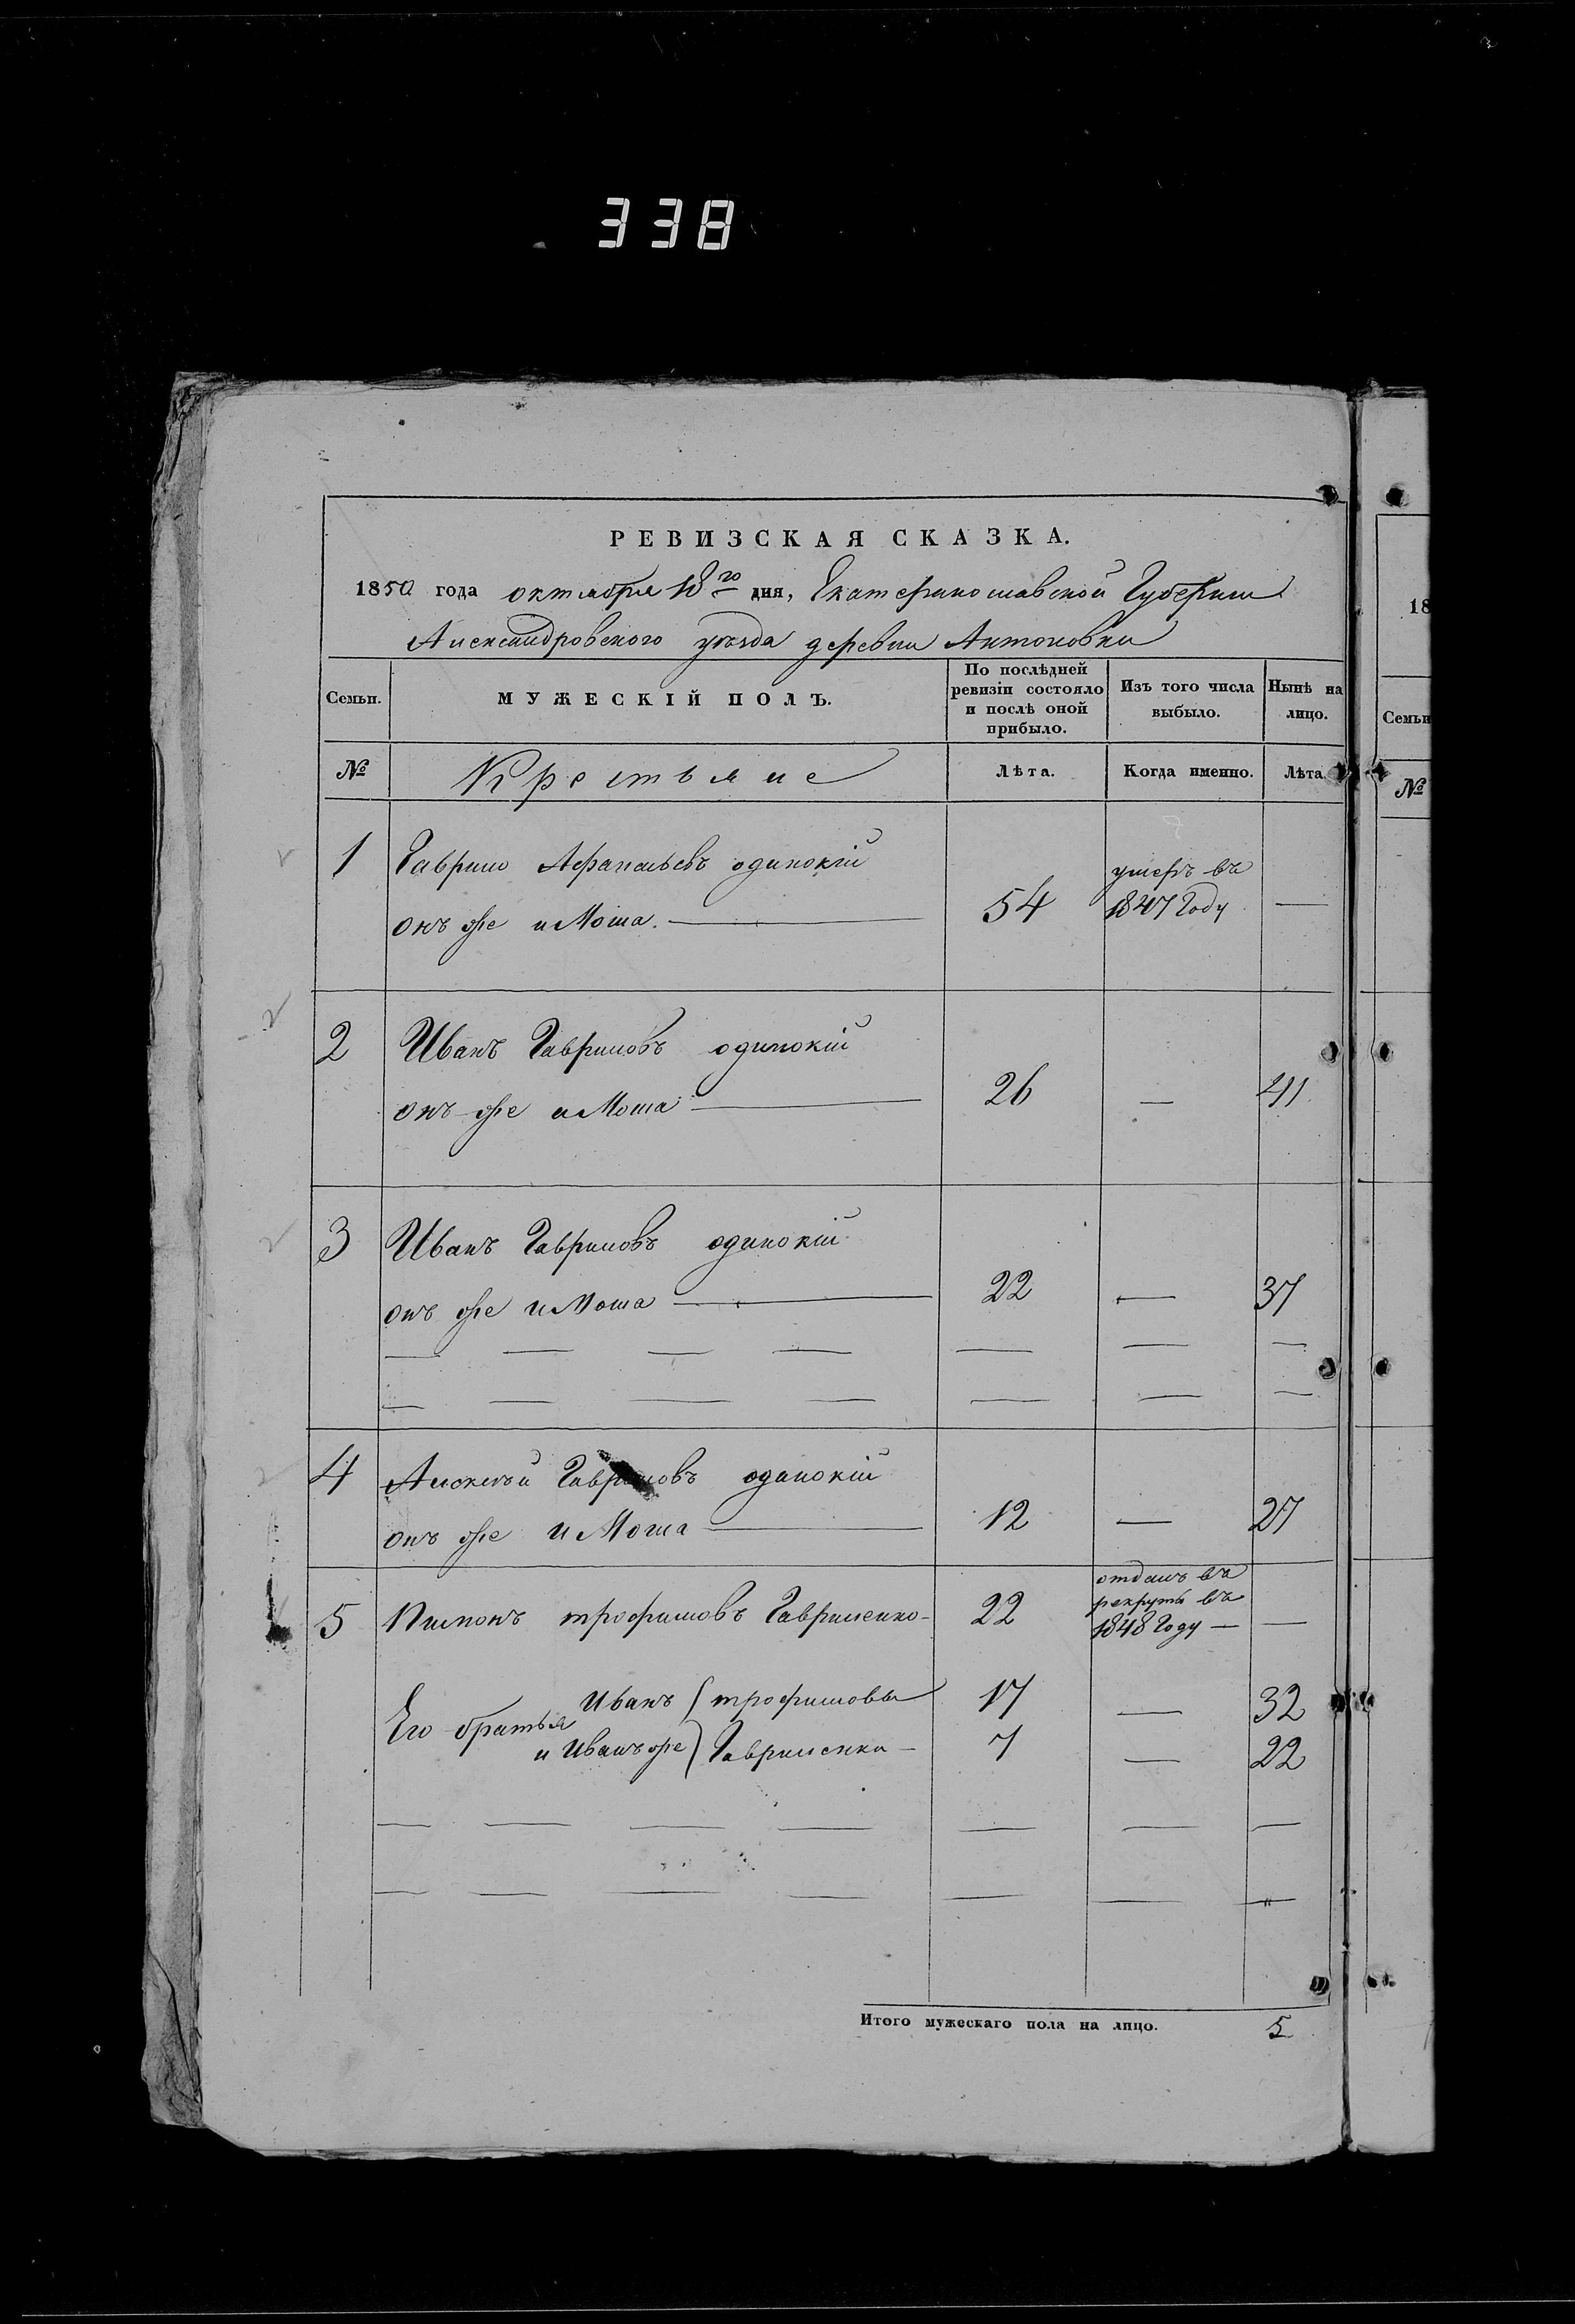 338
РЕВИЗСКАЯ СКАЗКА.
1850 года октября 18го дня, Екатеринославской Губернии
Александровского уезда деревни Антоновки
Семьи. МУЖЕСКІЙ ПОЛЪ. По послѣдней ревизіи состояло и послѣ оной прибыло. Изъ того числа выбыло. Нынѣ на лицо.
№ Крестьяне Лѣта. Когда именно. Лѣта
1 Гаврило Афанасьевъ одинокій
онъ же и Моша. 54 умеръ въ 1847 Году —
2 Иванъ Гавриловъ одинокій
онъ же и Моша 26 — 41
3 Иванъ Гавриловъ одинокій
онъ же и Моша 22 — 37
4 Алексѣй Гавриловъ одинокій
онъ же и Моша 12 — 27
5 трофимовъ Гавриленко 22 отданъ въ рекруты въ 1848 Году — —
Его братья Иванъ трофимовы 17 — 32
и Иванъ же Гавриленки 7 — 22
Итого мужескаго пола на лицо. 5
18
Семьи
№